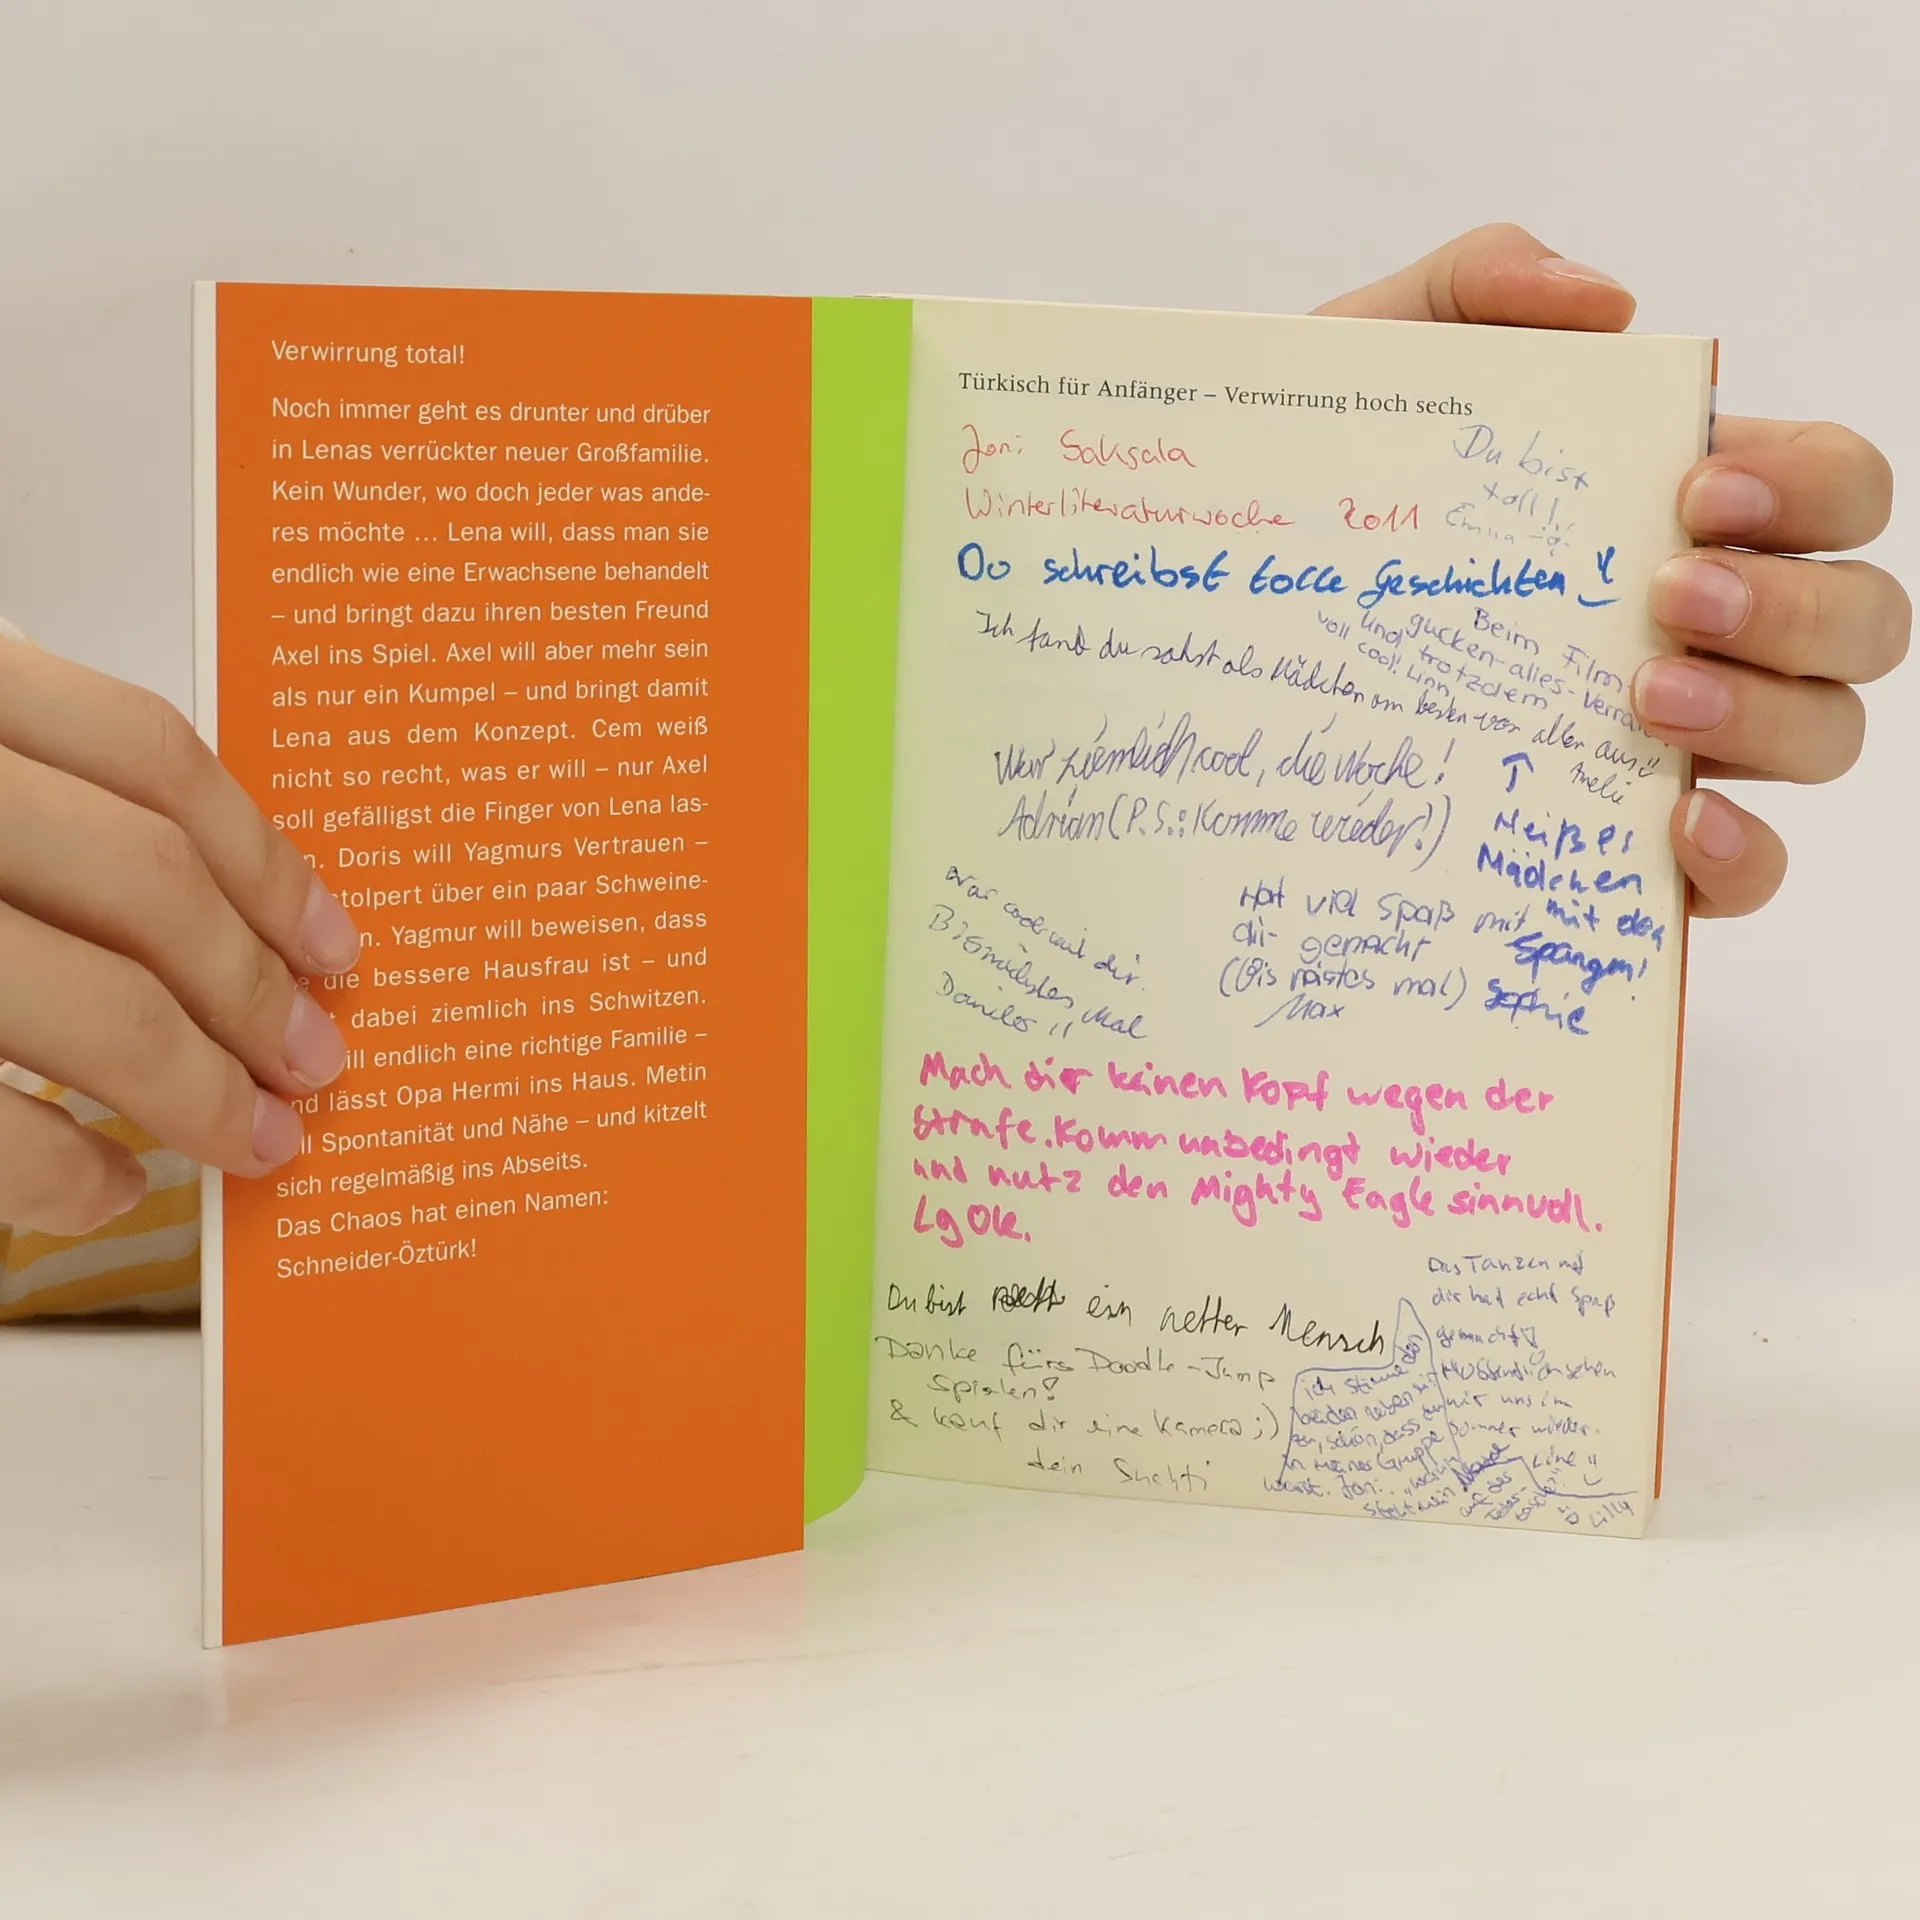 Verwirrung total!
Noch immer geht es drunter und drüber
in Lenas verrückter neuer Großfamilie.
Kein Wunder, wo doch jeder was ande-
res möchte ... Lena will, dass man sie
endlich wie eine Erwachsene behandelt
– und bringt dazu ihren besten Freund
Axel ins Spiel. Axel will aber mehr sein
als nur ein Kumpel – und bringt damit
Lena aus dem Konzept. Cem weiß
nicht so recht, was er will – nur Axel
soll gefälligst die Finger von Lena las-
n. Doris will Yagmurs Vertrauen –
stolpert über ein paar Schweine-
n. Yagmur will beweisen, dass
die bessere Hausfrau ist – und
t dabei ziemlich ins Schwitzen.
ill endlich eine richtige Familie –
nd lässt Opa Hermi ins Haus. Metin
ll Spontanität und Nähe – und kitzelt
sich regelmäßig ins Abseits.
Das Chaos hat einen Namen:
Schneider-Öztürk!
Türkisch für Anfänger – Verwirrung hoch sechs
Joni Saksala
Winterliteraturwoche 2011
Du bist
toll!
Emma
Du schreibst tolle Geschichten
Beim Film
gucken-alles-Verra
und trotzdem
voll cool! Linn
Ich fand du sahst als Mädchen am besten von allen aus
Amelie
War ziemlich cool, die Woche!
Adrian (P.S.: Komme wieder!)
↑
Heißes
Mädchen
mit den
Spangen!
Sophie
War cool mit dir.
Bis nächstes Mal
Danilo
Hat viel Spaß mit
dir gemacht
(Bis nästes mal)
Max
Mach dir keinen Kopf wegen der
Strafe. Komm unbedingt wieder
und nutz den Mighty Eagle sinnvoll.
Lg Ole.
Du bist ein netter Mensch
Danke fürs Doodle-Jump
Spielen!
& kauf dir eine Kamera ;)
dein
Das Tanzen mit
dir hat echt Spaß
gemacht
sehen
wir uns im
Sommer wieder.
Line
ich stimme den
beiden neben mir
zu, schön, dass du
in meiner Gruppe
warst. Joni:
steht mein
auf der
Lilly